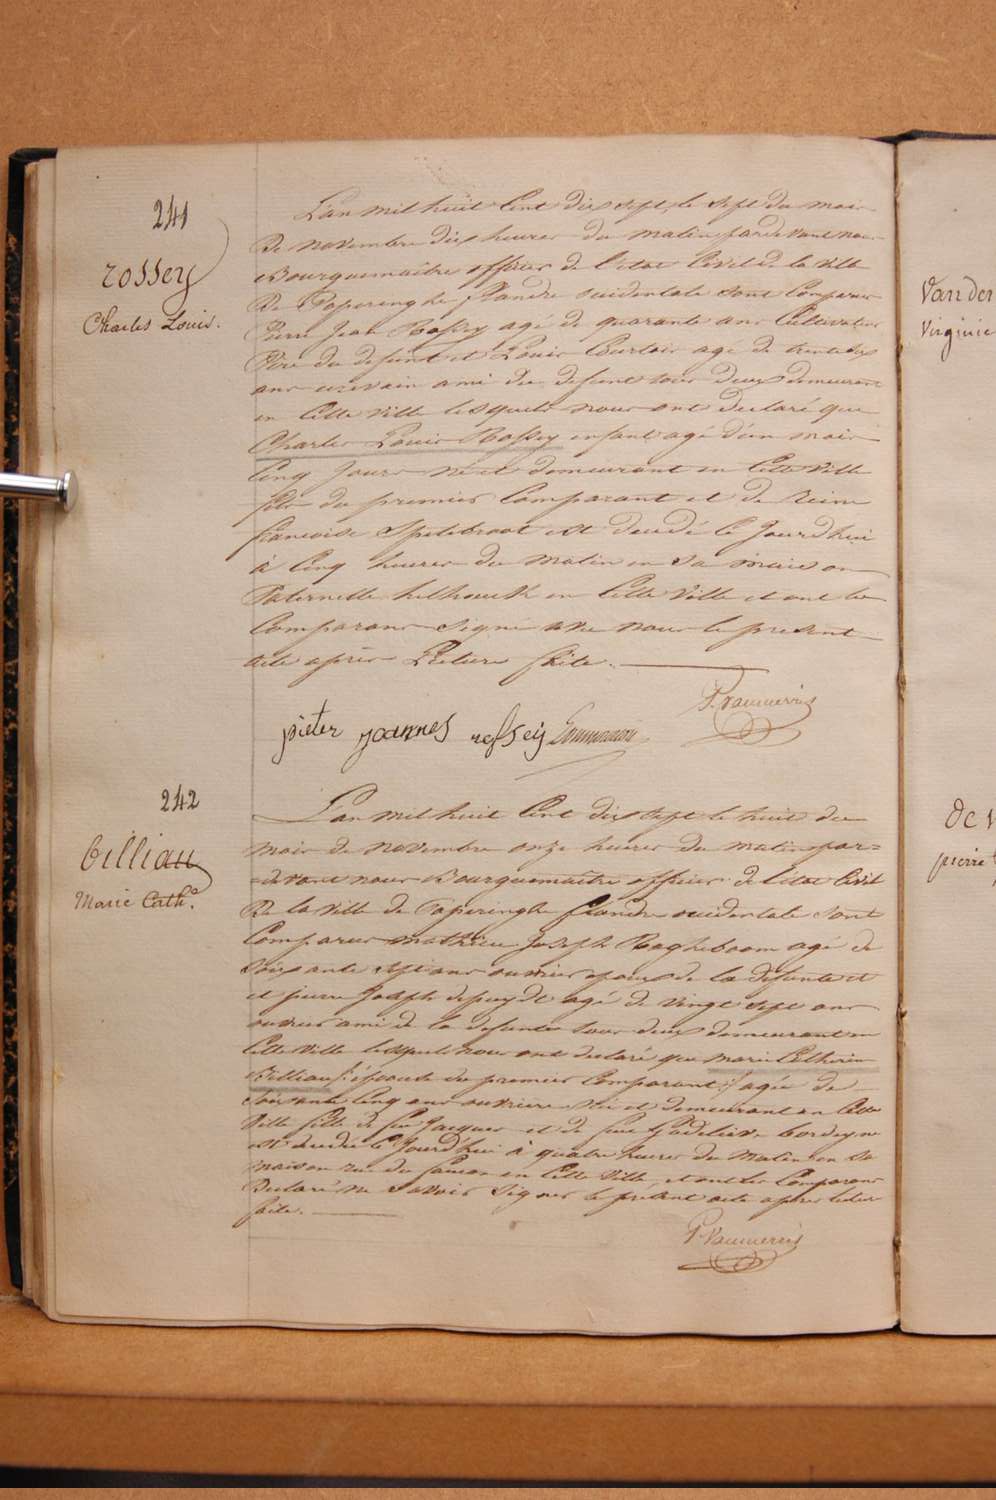 241
rossey
Charles Louis.
L'an mil huit Cent dix sept, le sept du mois
De novembre dix heures du matin pardevant nous
Bourguemaitre officier de l'etat Civil de la Ville
De Poperinghe flandre occidentale sont Comparus
Pierre Jean Rossey agé de quarante ans Cultivateur
Père du defunt et Louis Courtois agé de trente
ans ecrivain ami du defunt tous deux demeurant
en Cette Ville lesquels nous ont declaré que
Charles Louis Rossey enfant agé d'un mois
Cinq Jours né et demeurant en Cette Ville
fils du premier Comparant et de Reine
francoise est decedé le Jourd'hui
à Cinq heures du matin en sa maison
Paternelle en Cette Ville et ont les
Comparans Signé avec nous le present
acte après Lecture faite.
pieter joannes rossey
242
billiau
Marie Cath.e
L'an mil huit Cent dix sept le huit du
mois de novembre onze heures du matin par=
=devant nous Bourguemaitre officier de l'etat Civil
De la Ville de Poperinghe flandre occidentale sont
Comparus mathieu Joseph Ragheboom agé de
Soixante sept ans ouvrier epoux de la defunte et
et pierre Joseph depuydt agé de vingt sept ans
ouvrier ami de la defunte tous deux demeurant en
Cette Ville lesquels nous ont declaré que marie Catherine
Billiau épouse du premier Comparant agée de
Soixante Cinq ans ouvriere née et demeurant en Cette
Ville fille de feu Jacques et de feue Godelieve bordeyne
est decedée le Jourd'hui à quatre heures du matin en sa
maison rue du en Cette Ville, et ont les Comparans
Declaré ne savoir signer le présent acte apres lecture
faite.
Van den
Virginie
de V
pierre